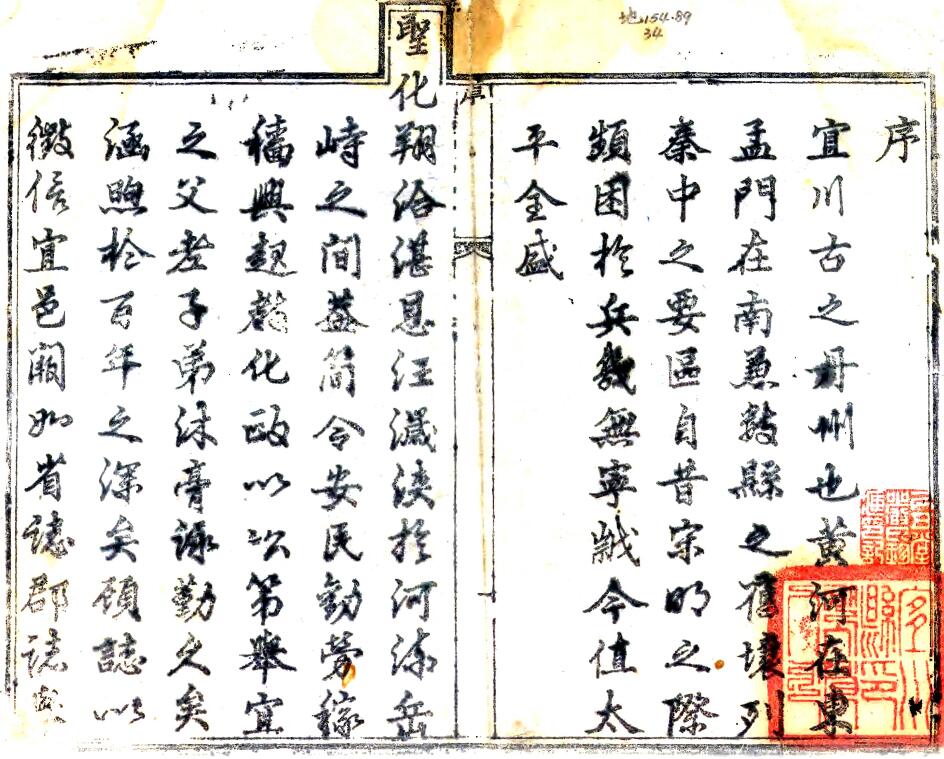 地154.89
34
序
宜川古之丹州也黃河在東
孟門在南兼數縣之舊壤列
秦中之要區自昔宋明之際
頻困於兵幾無寧今值太
平全盛
序
聖化翔洽湛恩汪濊浹於河流岳
峙之間蓋簡令安民勸勞稼
穡興起教化政以次第舉宜
之父老子弟沐膏詠勤久矣
涵煦於百年之深矣顧誌以
徵信宜邑闕如省誌郡誌